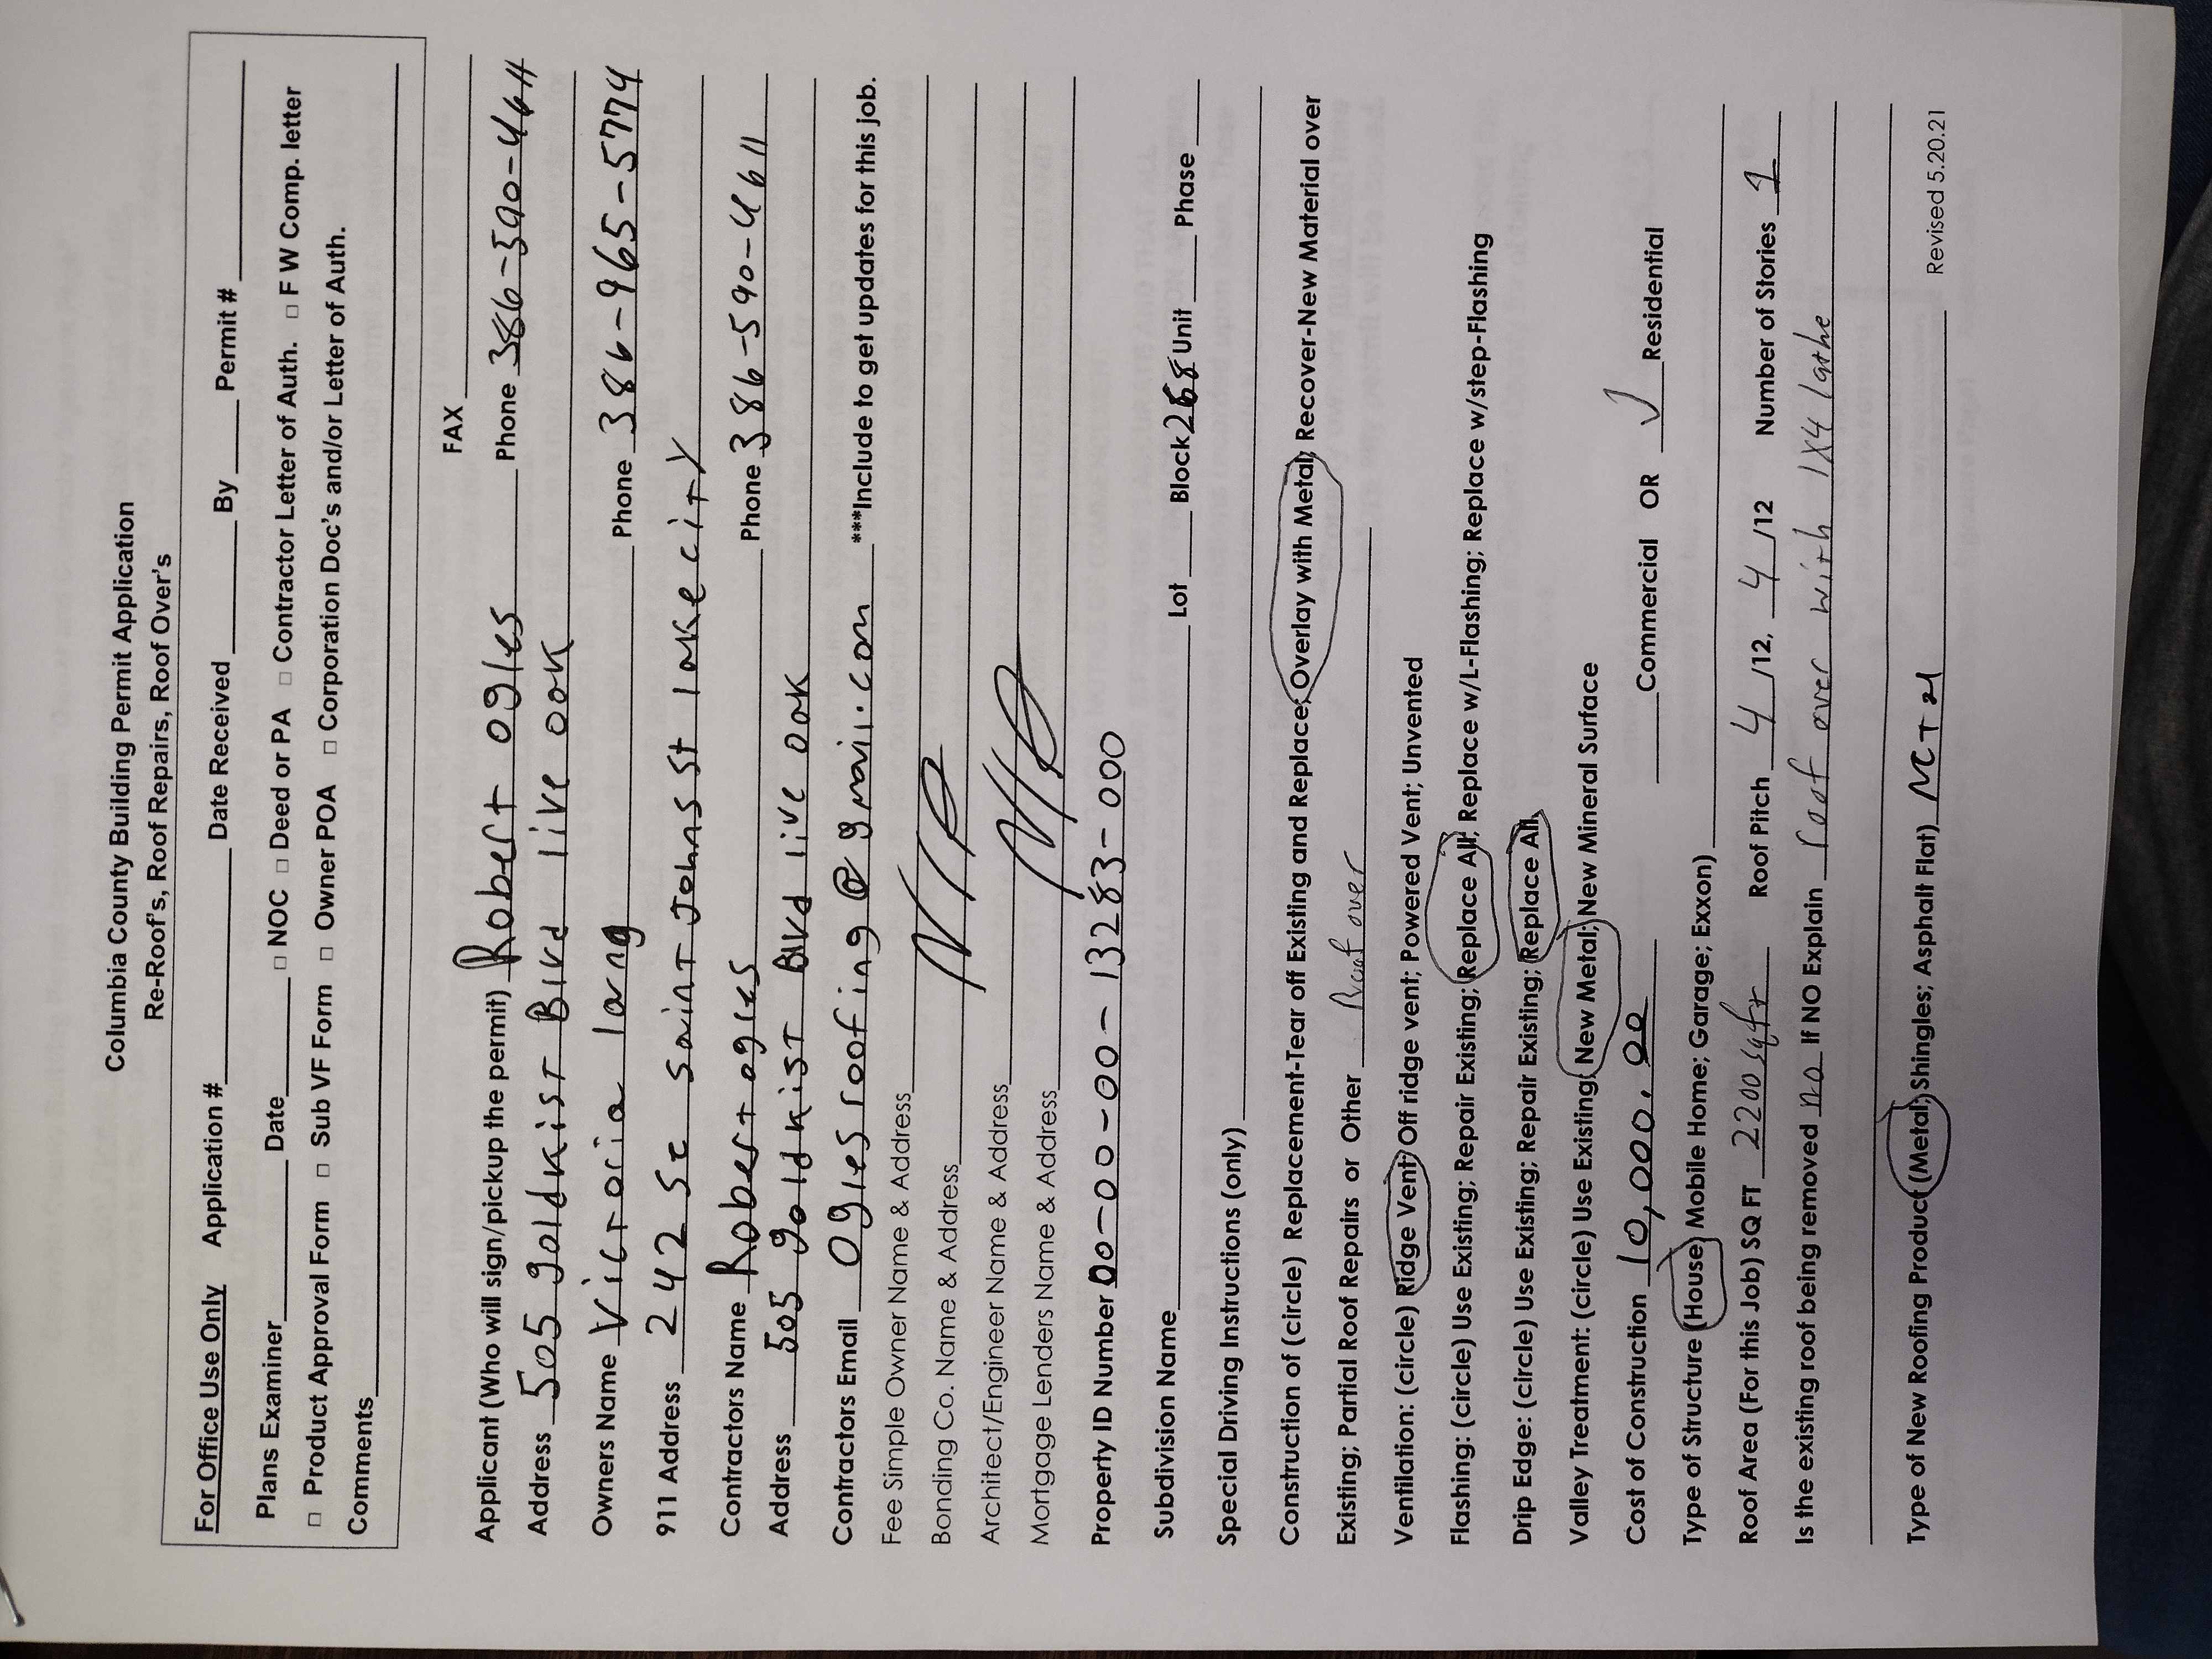 Columbia County Building Permit Application
Re-Roof's, Roof Repairs, Roof Over's
For Office Use Only Application # Date Received By Permit #
Plans Examiner Date □ NOC □ Deed or PA □ Contractor Letter of Auth. □ F W Comp. letter
□ Product Approval Form □ Sub VF Form □ Owner POA □ Corporation Doc's and/or Letter of Auth.
Comments
FAX
Applicant (Who will sign/pickup the permit) Robert Ogles Phone 386-590-4611
Address 505 goldkist Blvd live oak
Owners Name Victoria lang Phone 386-965-5774
911 Address 242 Se saint Johns st lake city
Contractors Name Robert ogles Phone 386-590-4611
Address 505 goldkist Blvd live oak
Contractors Email Oglesroofing@gmail.com ***Include to get updates for this job.
Fee Simple Owner Name & Address
Bonding Co. Name & Address
Architect/Engineer Name & Address
Mortgage Lenders Name & Address
Property ID Number 00-00-00-13283-000
Subdivision Name Lot Block 268 Unit Phase
Special Driving Instructions (only)
Construction of (circle) Replacement-Tear off Existing and Replace; Overlay with Metal; Recover-New Material over
Existing; Partial Roof Repairs or Other Roof over
Ventilation: (circle) Ridge Vent; Off ridge vent; Powered Vent; Unvented
Flashing: (circle) Use Existing; Repair Existing; Replace All; Replace w/L-Flashing; Replace w/step-Flashing
Drip Edge: (circle) Use Existing; Repair Existing; Replace All
Valley Treatment: (circle) Use Existing; New Metal; New Mineral Surface
Cost of Construction 10,000.00 Commercial OR ✓ Residential
Type of Structure (House; Mobile Home; Garage; Exxon)
Roof Area (For this Job) SQ FT 2200 sqft Roof Pitch 4 /12, 4 /12 Number of Stories 1
Is the existing roof being removed no If NO Explain roof over with 1x4 lathe
Type of New Roofing Product (Metal; Shingles; Asphalt Flat)
Revised 5.20.21